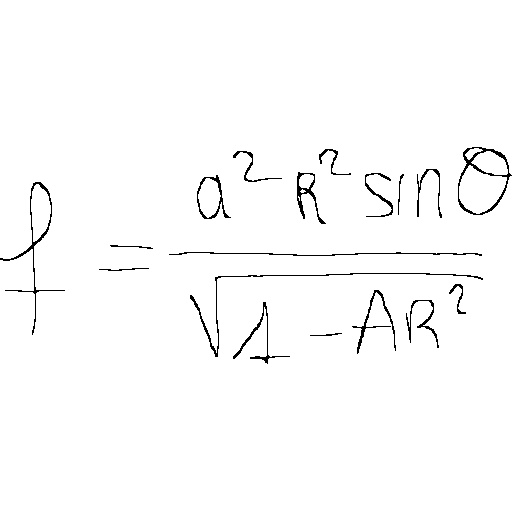 f = \frac{a^2 R^2 \sin\theta}{\sqrt{1 - AR^2}}